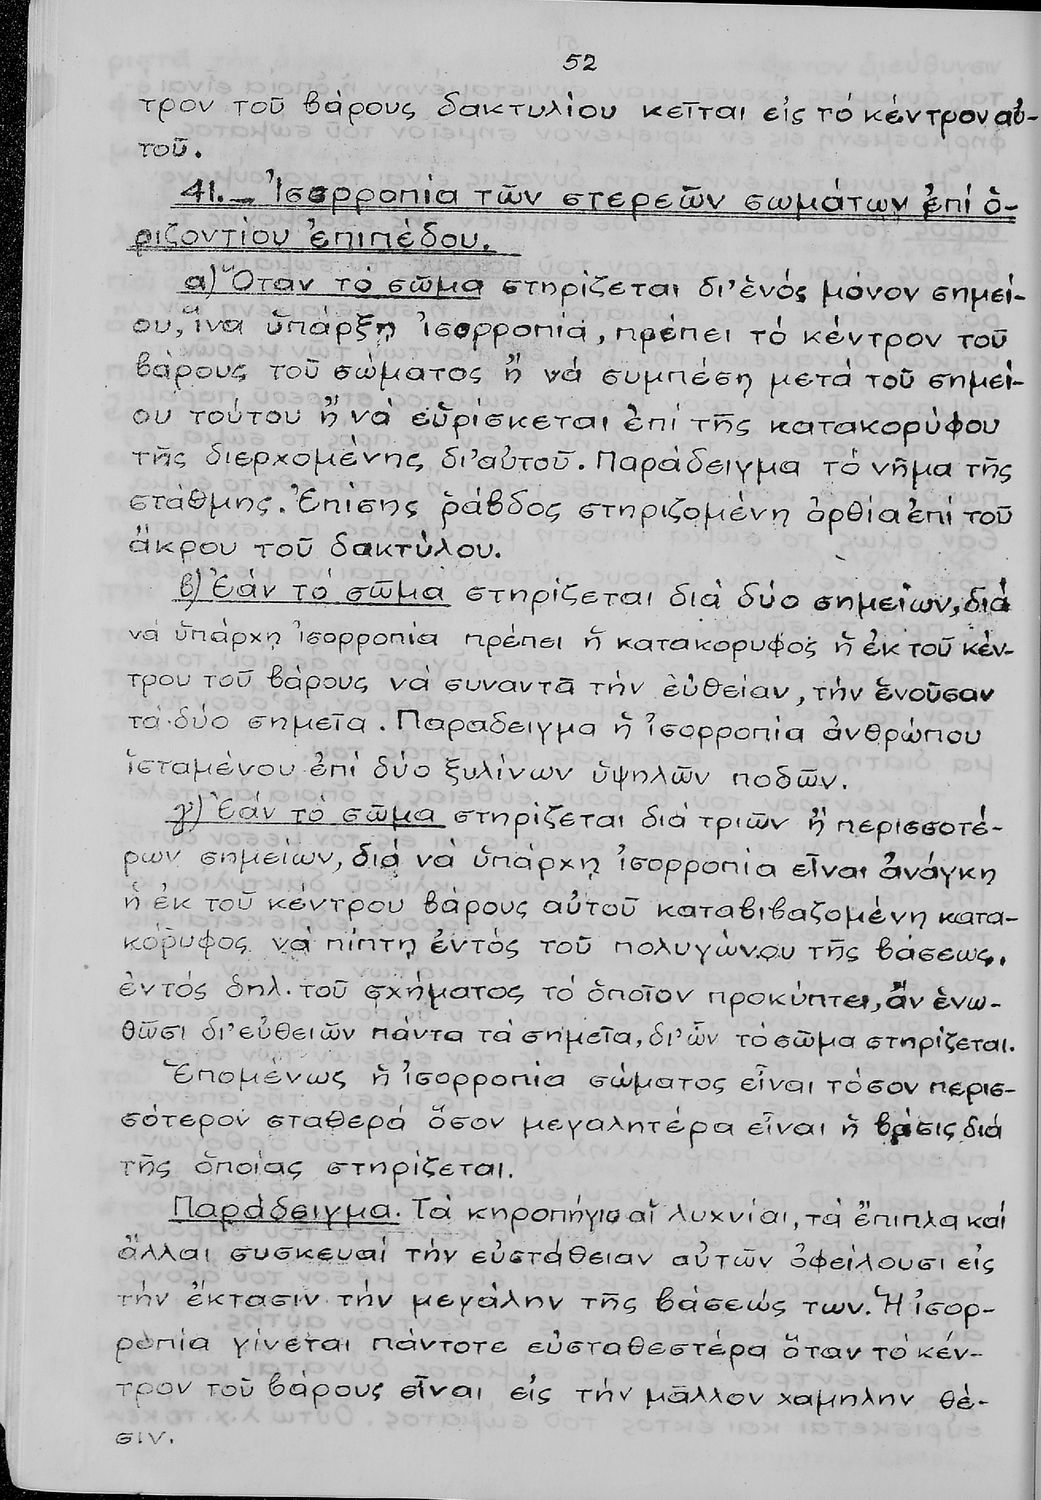 52
τρον τοῦ βάρους δακτυλίου κεῖται εἰς τό κέντρον αὐ-
τοῦ.
41.- Ἰσορροπία τῶν στερεῶν σωμάτων ἐπί ὁ-
ριζοντίου ἐπιπέδου.
α) Ὅταν τό σῶμα στηρίζεται δι' ἑνός μόνον σημεί-
ου, ἵνα ὑπάρξῃ ἰσορροπία, πρέπει τό κέντρον τοῦ
βάρους τοῦ σώματος ἤ νά συμπέσῃ μετά τοῦ σημεί-
ου τούτου ἤ νά εὑρίσκεται ἐπί τῆς κατακορύφου
τῆς διερχομένης δι' αὐτοῦ. Παράδειγμα τό νῆμα τῆς
στάθμης. Ἐπίσης ῥάβδος στηριζομένη ὀρθία ἐπί τοῦ
ἄκρου τοῦ δακτύλου.
β) Ἐάν τό σῶμα στηρίζεται διά δύο σημείων, διά
νά ὑπάρχῃ ἰσορροπία πρέπει ἡ κατακόρυφος ἡ ἐκ τοῦ κέν-
τρου τοῦ βάρους νά συναντᾷ τήν εὐθεῖαν, τήν ἑνοῦσαν
τά δύο σημεῖα. Παραδειγμα ἡ ἰσορροπία ἀνθρώπου
ἱσταμένου ἐπί δύο ξυλίνων ὑψηλῶν ποδῶν.
γ) Ἐάν τό σῶμα στηρίζεται διά τριῶν ἤ περισσοτέ-
ρων σημείων, διά νά ὑπάρχῃ ἰσορροπία εἶναι ἀνάγκη
ἡ ἐκ τοῦ κέντρου βάρους αὐτοῦ καταβιβαζομένη κατα-
κόρυφος νά πίπτῃ ἐντός τοῦ πολυγώνου τῆς βάσεως,
ἐντός δηλ. τοῦ σχήματος τό ὁποῖον προκύπτει, ἄν ἑνω-
θῶσι δι' εὐθειῶν πάντα τά σημεῖα, δι' ὧν τό σῶμα στηρίζεται.
Ἑπομένως ἡ ἰσορροπία σώματος εἶναι τόσον περισ-
σότερον σταθερά ὅσον μεγαλητέρα εἶναι ἡ βάσις διά
τῆς ὁποίας στηρίζεται.
Παράδειγμα. Τά κηροπήγια αἱ λυχνίαι, τά ἔπιπλα καί
ἄλλαι συσκευαί τήν εὐστάθειαν αὐτῶν ὀφείλουσι εἰς
τήν ἔκτασιν τήν μεγάλην τῆς βάσεώς των. Ἡ ἰσορ-
ροπία γίνεται πάντοτε εὐσταθεστέρα ὅταν τό κέν-
τρον τοῦ βάρους εἶναι εἰς τήν μᾶλλον χαμηλην θέ-
σιν.